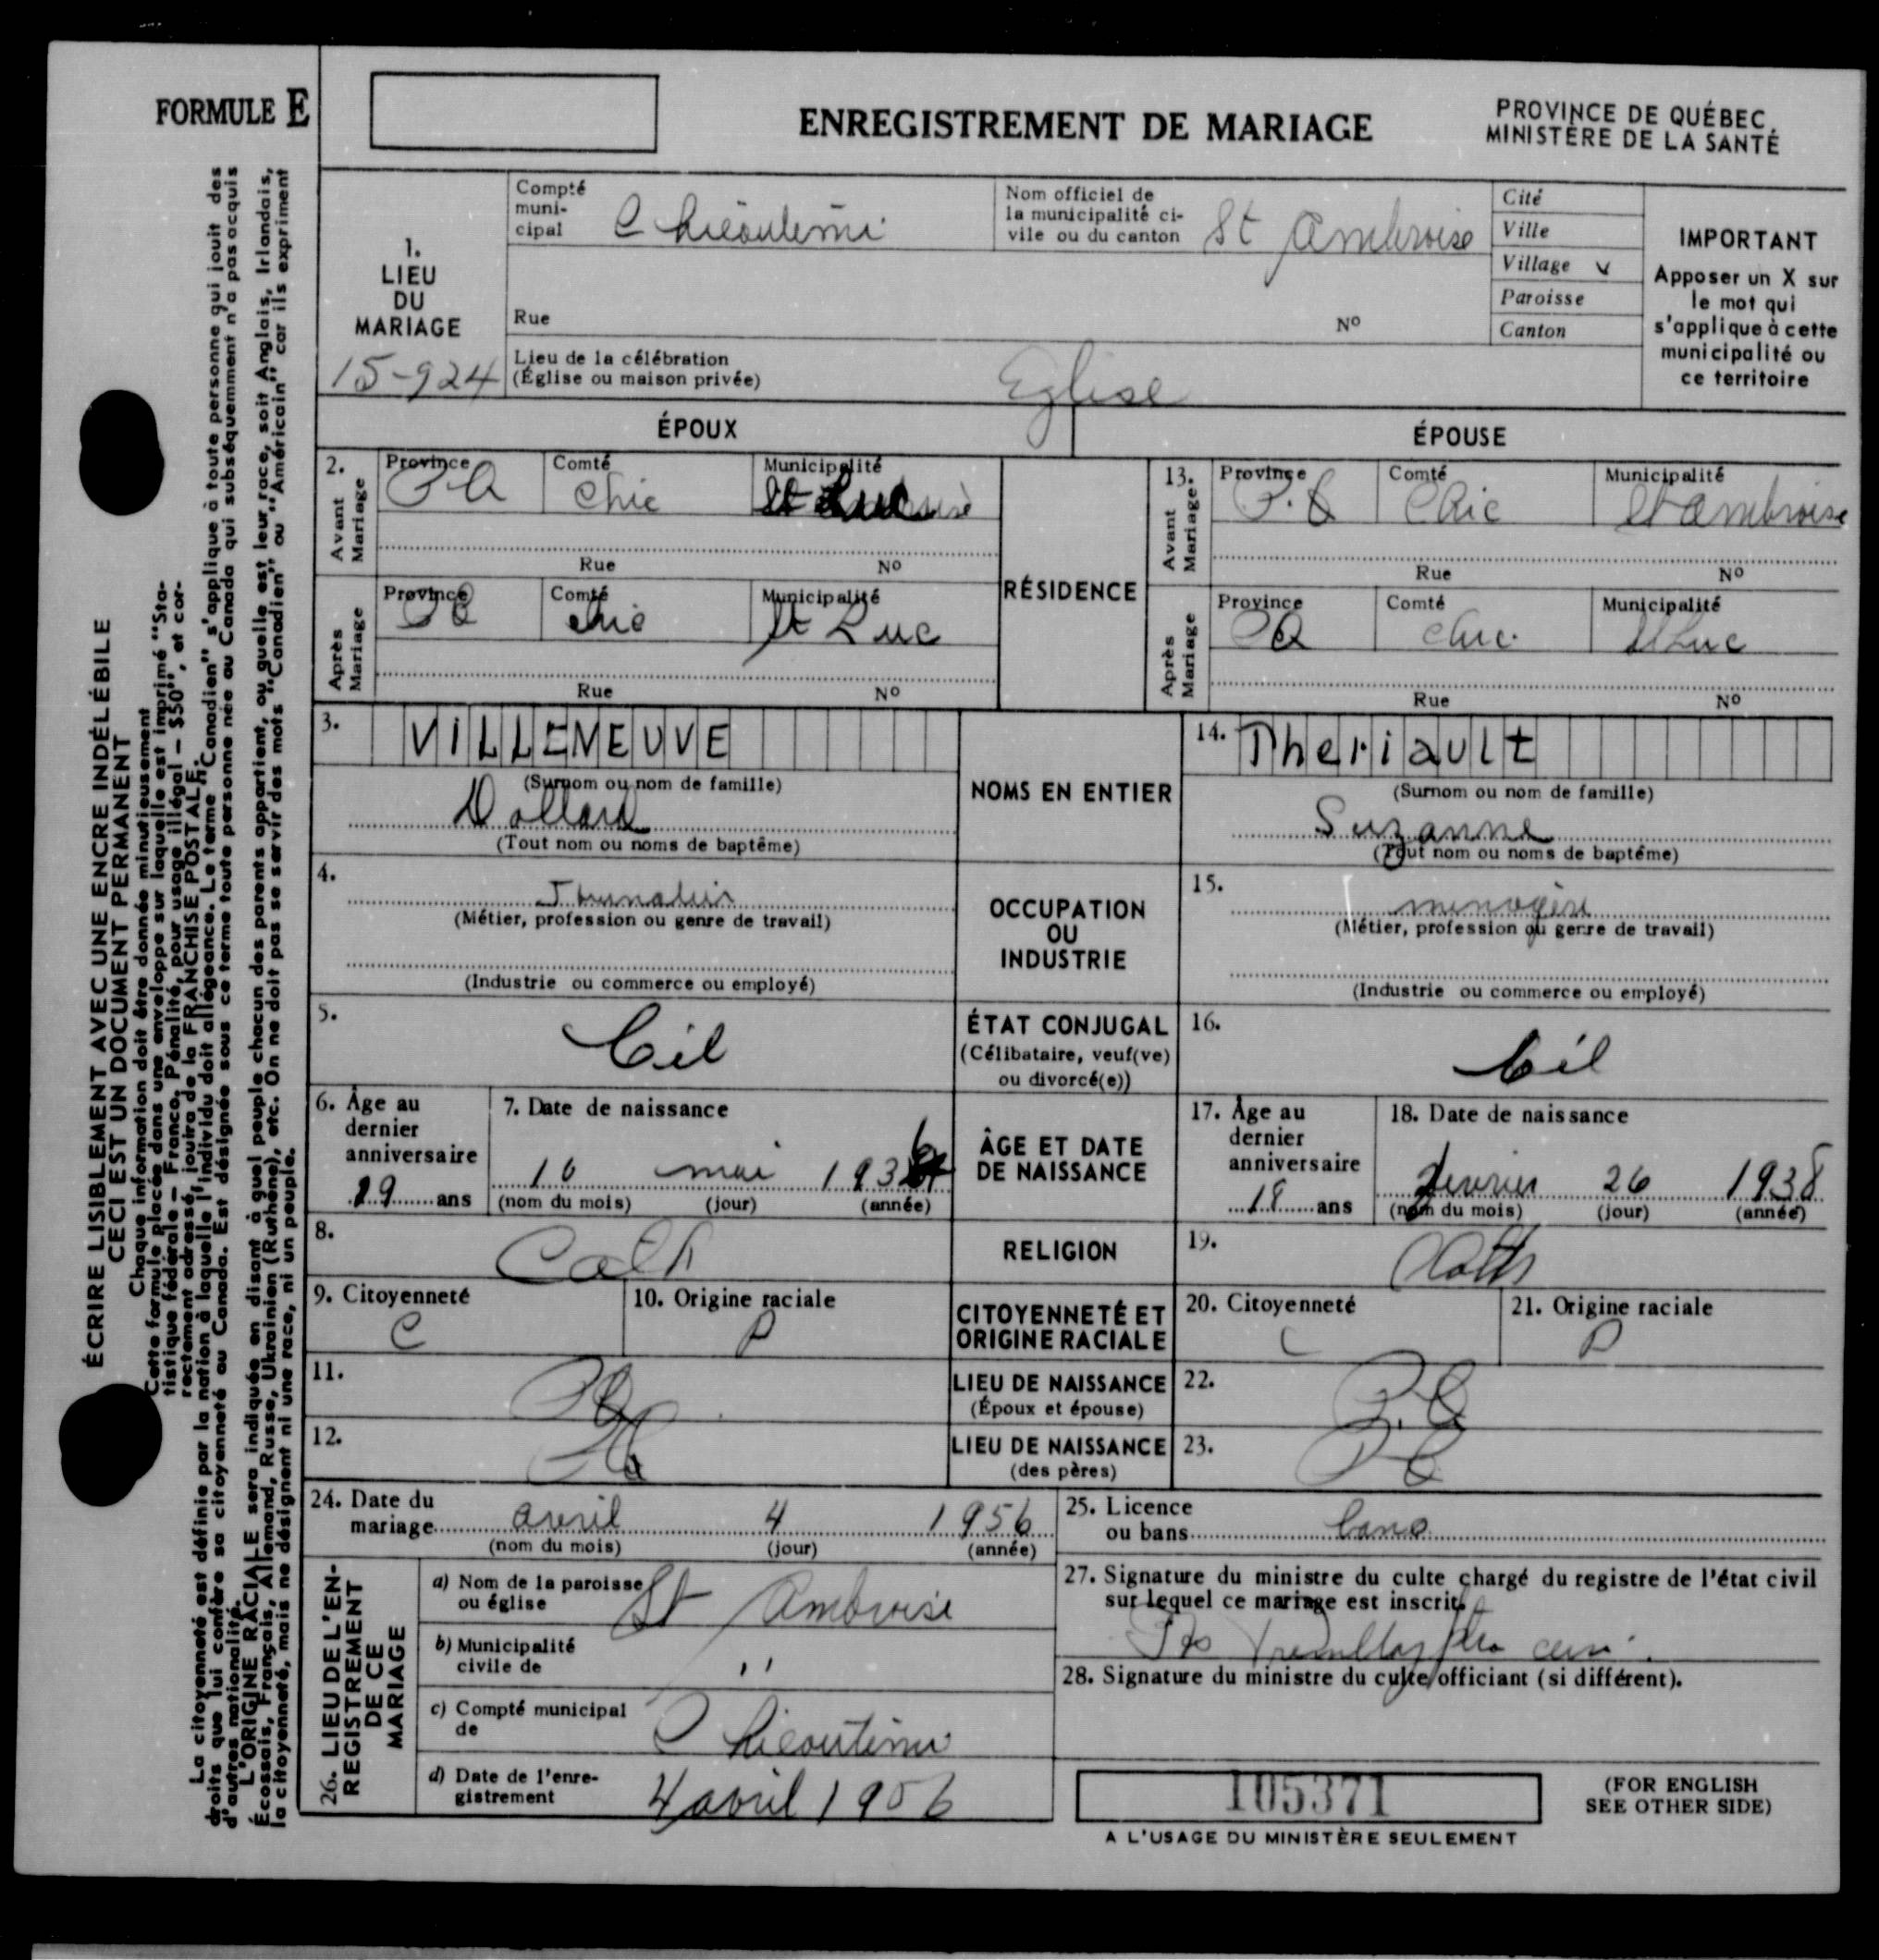 FORMULE E
ENREGISTREMENT DE MARIAGE
PROVINCE DE QUÉBEC
MINISTÈRE DE LA SANTÉ
ÉCRIRE LISIBLEMENT AVEC UNE ENCRE INDÉLÉBILE
CECI EST UN DOCUMENT PERMANENT
Chaque information doit être donnée minutieusement
Cette formule placée dans une enveloppe sur laquelle est imprimé "Sta-
tistique fédérale – Franco, Pénalité, pour usage illégal – $50", et cor-
rectement adressé, jouira de la FRANCHISE POSTALE.
La citoyenneté est définie par la nation à laquelle l'individu doit allégeance. Le terme "Canadien" s'applique à toute personne qui jouit des
droits que lui confère sa citoyenneté au Canada. Est désignée sous ce terme toute personne née au Canada qui subséquemment n'a pas acquis
d'autres nationalité.
L'ORIGINE RACIALE sera indiquée en disant à quel peuple chacun des parents appartient, ou quelle est leur race, soit Anglais, Irlandais,
Écossais, Français, Allemand, Russe, Ukrainien (Ruthène), etc. On ne doit pas se servir des mots "Canadien" ou "Américain" car ils expriment
la citoyenneté, mais ne désignent ni une race, ni un peuple.
1.
LIEU
DU
MARIAGE
15-924
Compté
muni-
cipal Chicoutimi
Nom officiel de
la municipalité ci-
vile ou du canton St Ambroise
Cité
Ville
Village v
Paroisse
Canton
IMPORTANT
Apposer un X sur
le mot qui
s'applique à cette
municipalité ou
ce territoire
Rue Nº
Lieu de la célébration
(Église ou maison privée) Eglise
ÉPOUX
ÉPOUSE
2. Avant Mariage
Province Comté Municipalité
PQ Chic St Luc
Rue Nº
Après Mariage
Province Comté Municipalité
PQ Chic St Luc
Rue Nº
RÉSIDENCE
13. Avant Mariage
Province Comté Municipalité
P.Q Chic St Ambroise
Rue Nº
Après Mariage
Province Comté Municipalité
PQ Chic. St Luc
Rue Nº
3. VILLENEUVE
(Surnom ou nom de famille)
Dollard
(Tout nom ou noms de baptême)
NOMS EN ENTIER
14. Theriault
(Surnom ou nom de famille)
Suzanne
(Tout nom ou noms de baptême)
4. Journalier
(Métier, profession ou genre de travail)
(Industrie ou commerce ou employé)
OCCUPATION
OU
INDUSTRIE
15. menagère
(Métier, profession ou genre de travail)
(Industrie ou commerce ou employé)
5. Cél
ÉTAT CONJUGAL
(Célibataire, veuf(ve)
ou divorcé(e))
16. Cél
6. Âge au
dernier
anniversaire
19 ans
7. Date de naissance
16 mai 1936
(nom du mois) (jour) (année)
ÂGE ET DATE
DE NAISSANCE
17. Âge au
dernier
anniversaire
18 ans
18. Date de naissance
fevrier 26 1938
(nom du mois) (jour) (année)
8. Cath
RELIGION
19. Cath
9. Citoyenneté
C
10. Origine raciale
CITOYENNETÉ ET
ORIGINE RACIALE
20. Citoyenneté
C
21. Origine raciale
11. PQ
LIEU DE NAISSANCE
(Époux et épouse)
22. P.Q
12. PQ
LIEU DE NAISSANCE
(des pères)
23. PQ
24. Date du
mariage avril 4 1956
(nom du mois) (jour) (année)
25. Licence
ou bans bans
26. LIEU DE L'EN-
REGISTREMENT
DE CE
MARIAGE
a) Nom de la paroisse
ou église St Ambroise
b) Municipalité
civile de ''
c) Compté municipal
de Chicoutimi
d) Date de l'enre-
gistrement 4 avril 1956
27. Signature du ministre du culte chargé du registre de l'état civil
sur lequel ce mariage est inscrit.
Tremblay ptre curé
28. Signature du ministre du culte officiant (si différent).
105371
A L'USAGE DU MINISTÈRE SEULEMENT
(FOR ENGLISH
SEE OTHER SIDE)